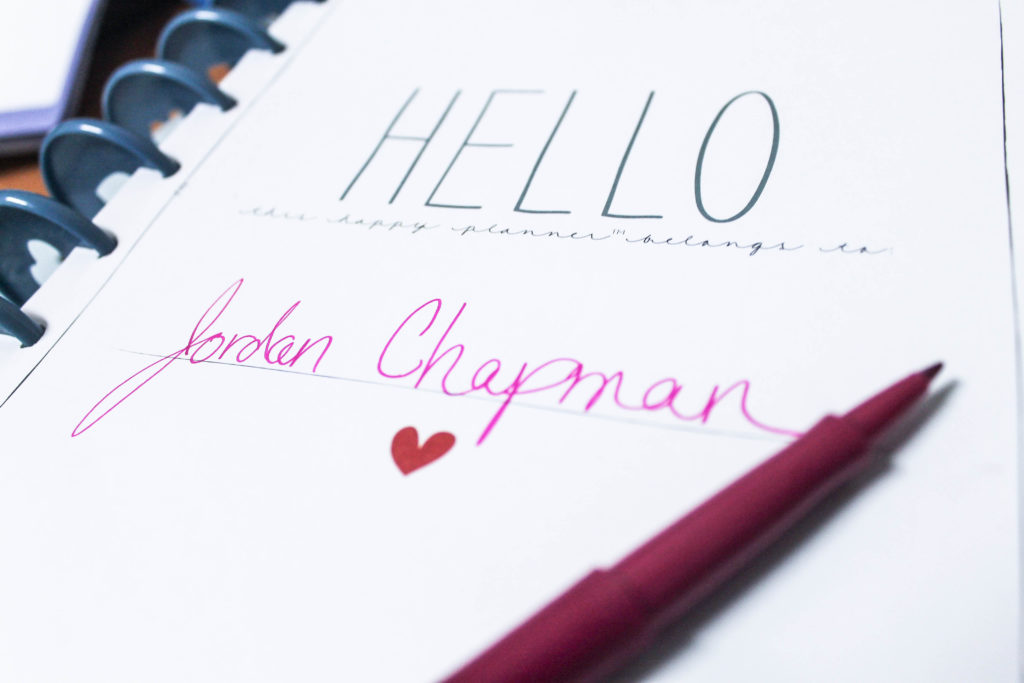 HELLO
this happy planner™ belongs to:
Jordan Chapman